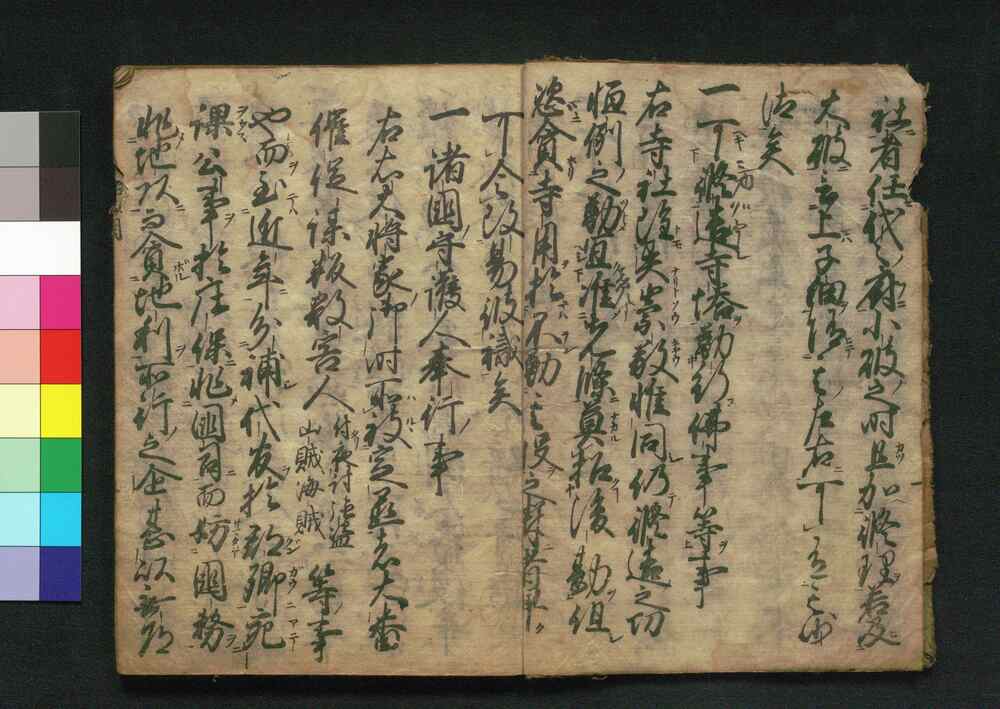 社者任代々符小破之時且加修理若及
大破言上子細随于其左右可有其沙
汰矣
一可修造寺塔勤行佛事等事
右寺社雖異崇敬惟同仍修造之功
恒例之勤宜准先條莫招後勘但
恣貪寺用於不勤其役之輩者早
可令改易彼職矣
一諸國守護人奉行事
右右大将家御時所被定置者大番
催促謀叛殺害人付夜討強盗山賊海賊等事
也而至近年分補代官於郡郷宛
課公事於庄保非國司而妨國務
非地頭而貪地利所行之企甚以無道